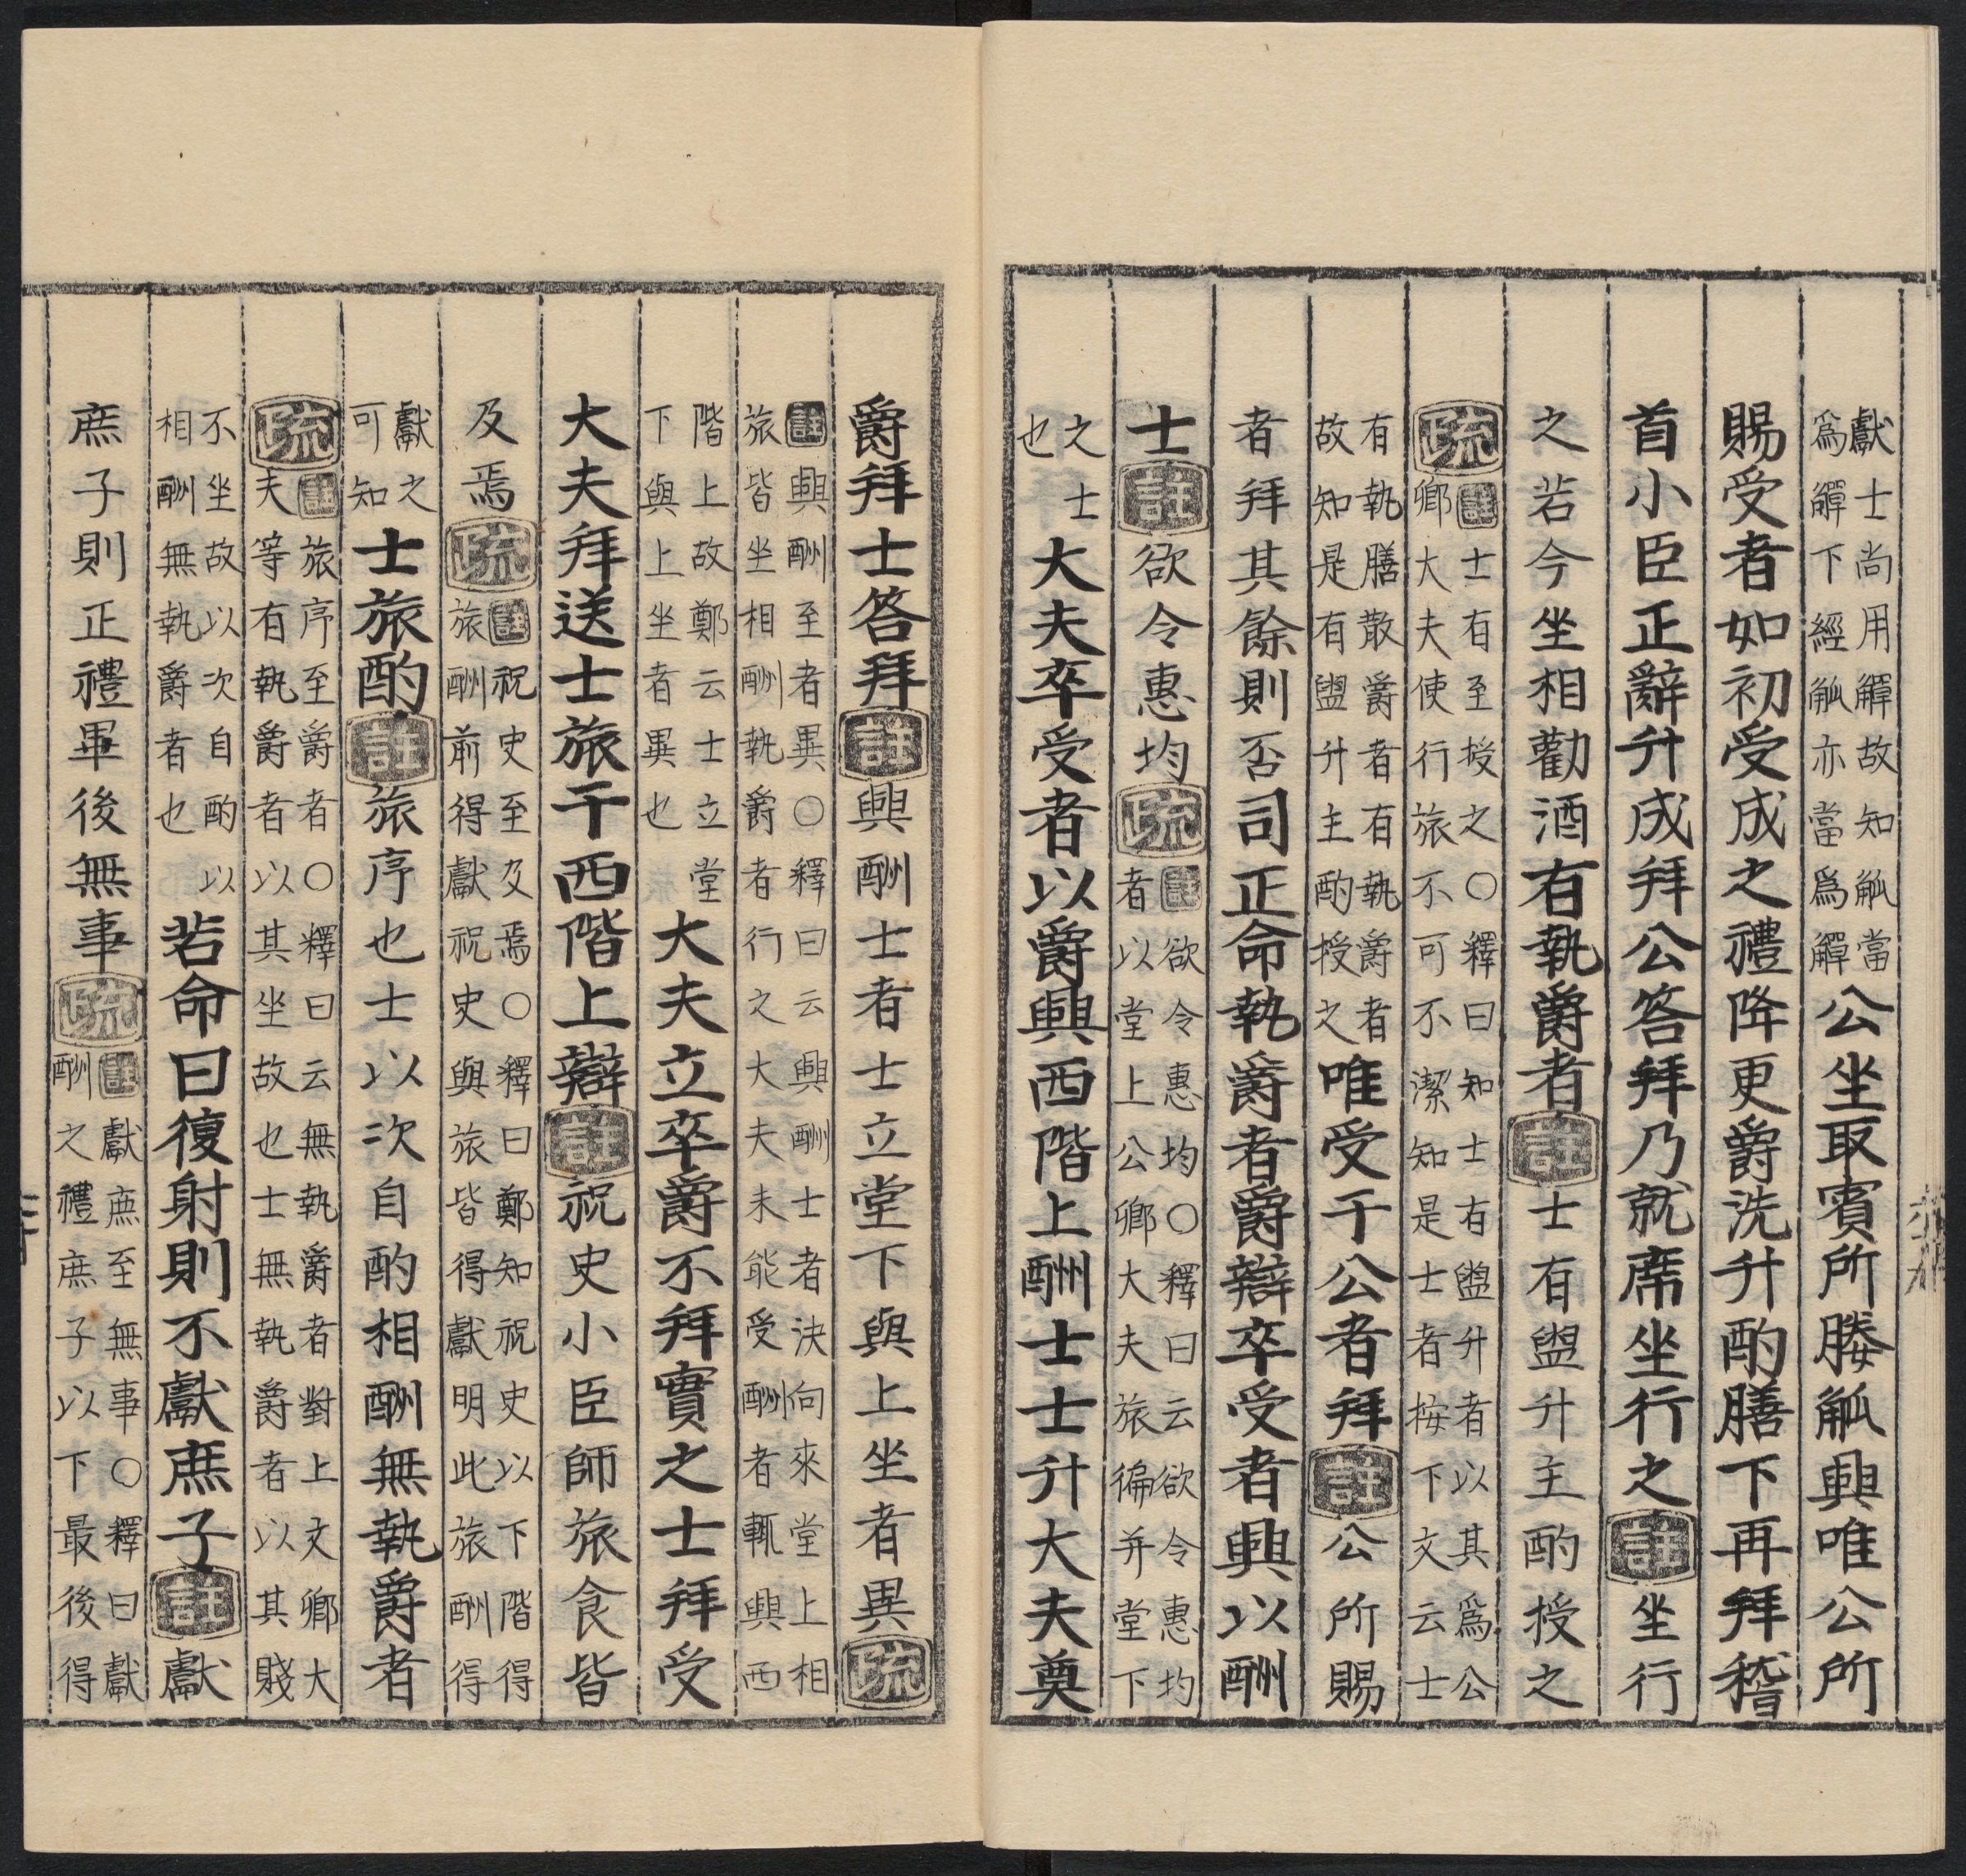 獻士尚用觶故知觚當
爲觶下經觚亦當爲觶
公坐取賓所媵觚興唯公所
賜受者如初受成之禮降更爵洗升酌膳下再拜稽
首小臣正辭升成拜公答拜乃就席坐行之註坐行
之若今坐相勸酒有執爵者註士有盥升主酌授之
疏
註士有至授之○釋曰知士有盥升者以其爲公
卿大夫使行旅不可不潔知是士者桉下文云士
有執膳散爵者有執爵者
故知是有盥升主酌授之
唯受于公者拜註公所賜
者拜其餘則否司正命執爵者爵辯卒受者興以酬
士註欲令惠均疏
註欲令惠均○釋曰云欲令惠均
者以堂上公卿大夫旅徧并堂下
之士
也
大夫卒受者以爵興西階上酬士士升大夫奠
爵拜士答拜註興酬士者士立堂下與上坐者異疏
註興酬至者異○釋曰云興酬士者決向來堂上相
旅皆坐相酬執爵者行之大夫未能受酬者輒興西
階上故鄭云士立堂
下與上坐者異也
大夫立卒爵不拜實之士拜受
大夫拜送士旅于西階上辯註祝史小臣師旅食皆
及焉疏
註祝史至及焉○釋曰鄭知祝史以下階得
旅酬前得獻祝史與旅皆得獻明此旅酬得
獻之
可知
士旅酌註旅序也士以次自酌相酬無執爵者
疏
註旅序至爵者○釋曰云無執爵者對上文卿大
夫等有執爵者以其坐故也士無執爵者以其賤
不坐故以次自酌以
相酬無執爵者也
若命曰復射則不獻庶子註獻
庶子則正禮畢後無事疏
註獻庶至無事○釋曰獻
酬之禮庶子以下最後得